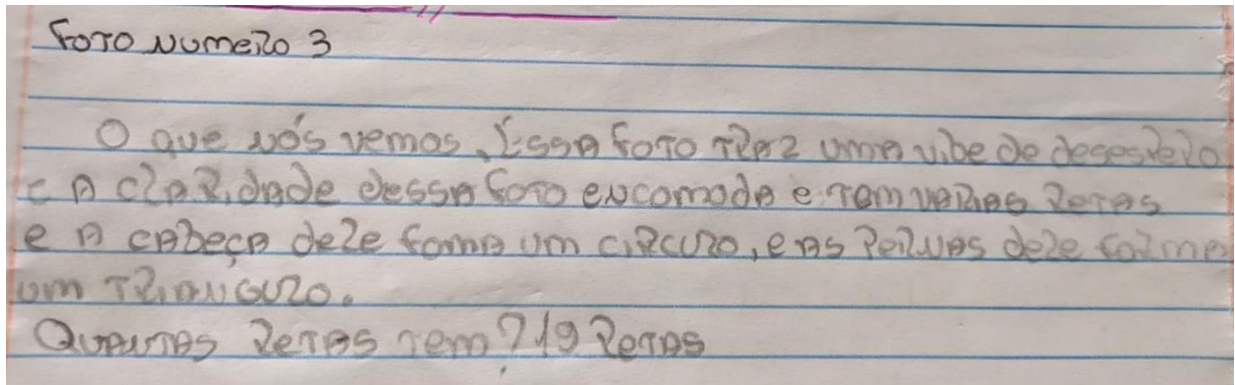 Foto Numero 3
O que nós vemos. Essa foto traz uma vibe de desespero
e a claridade dessa foto encomoda e tem varias retas
e a cabeça dele foma um circuro, e as pernas dele forma
um trianguro.
Quantas retas tem? 19 retas